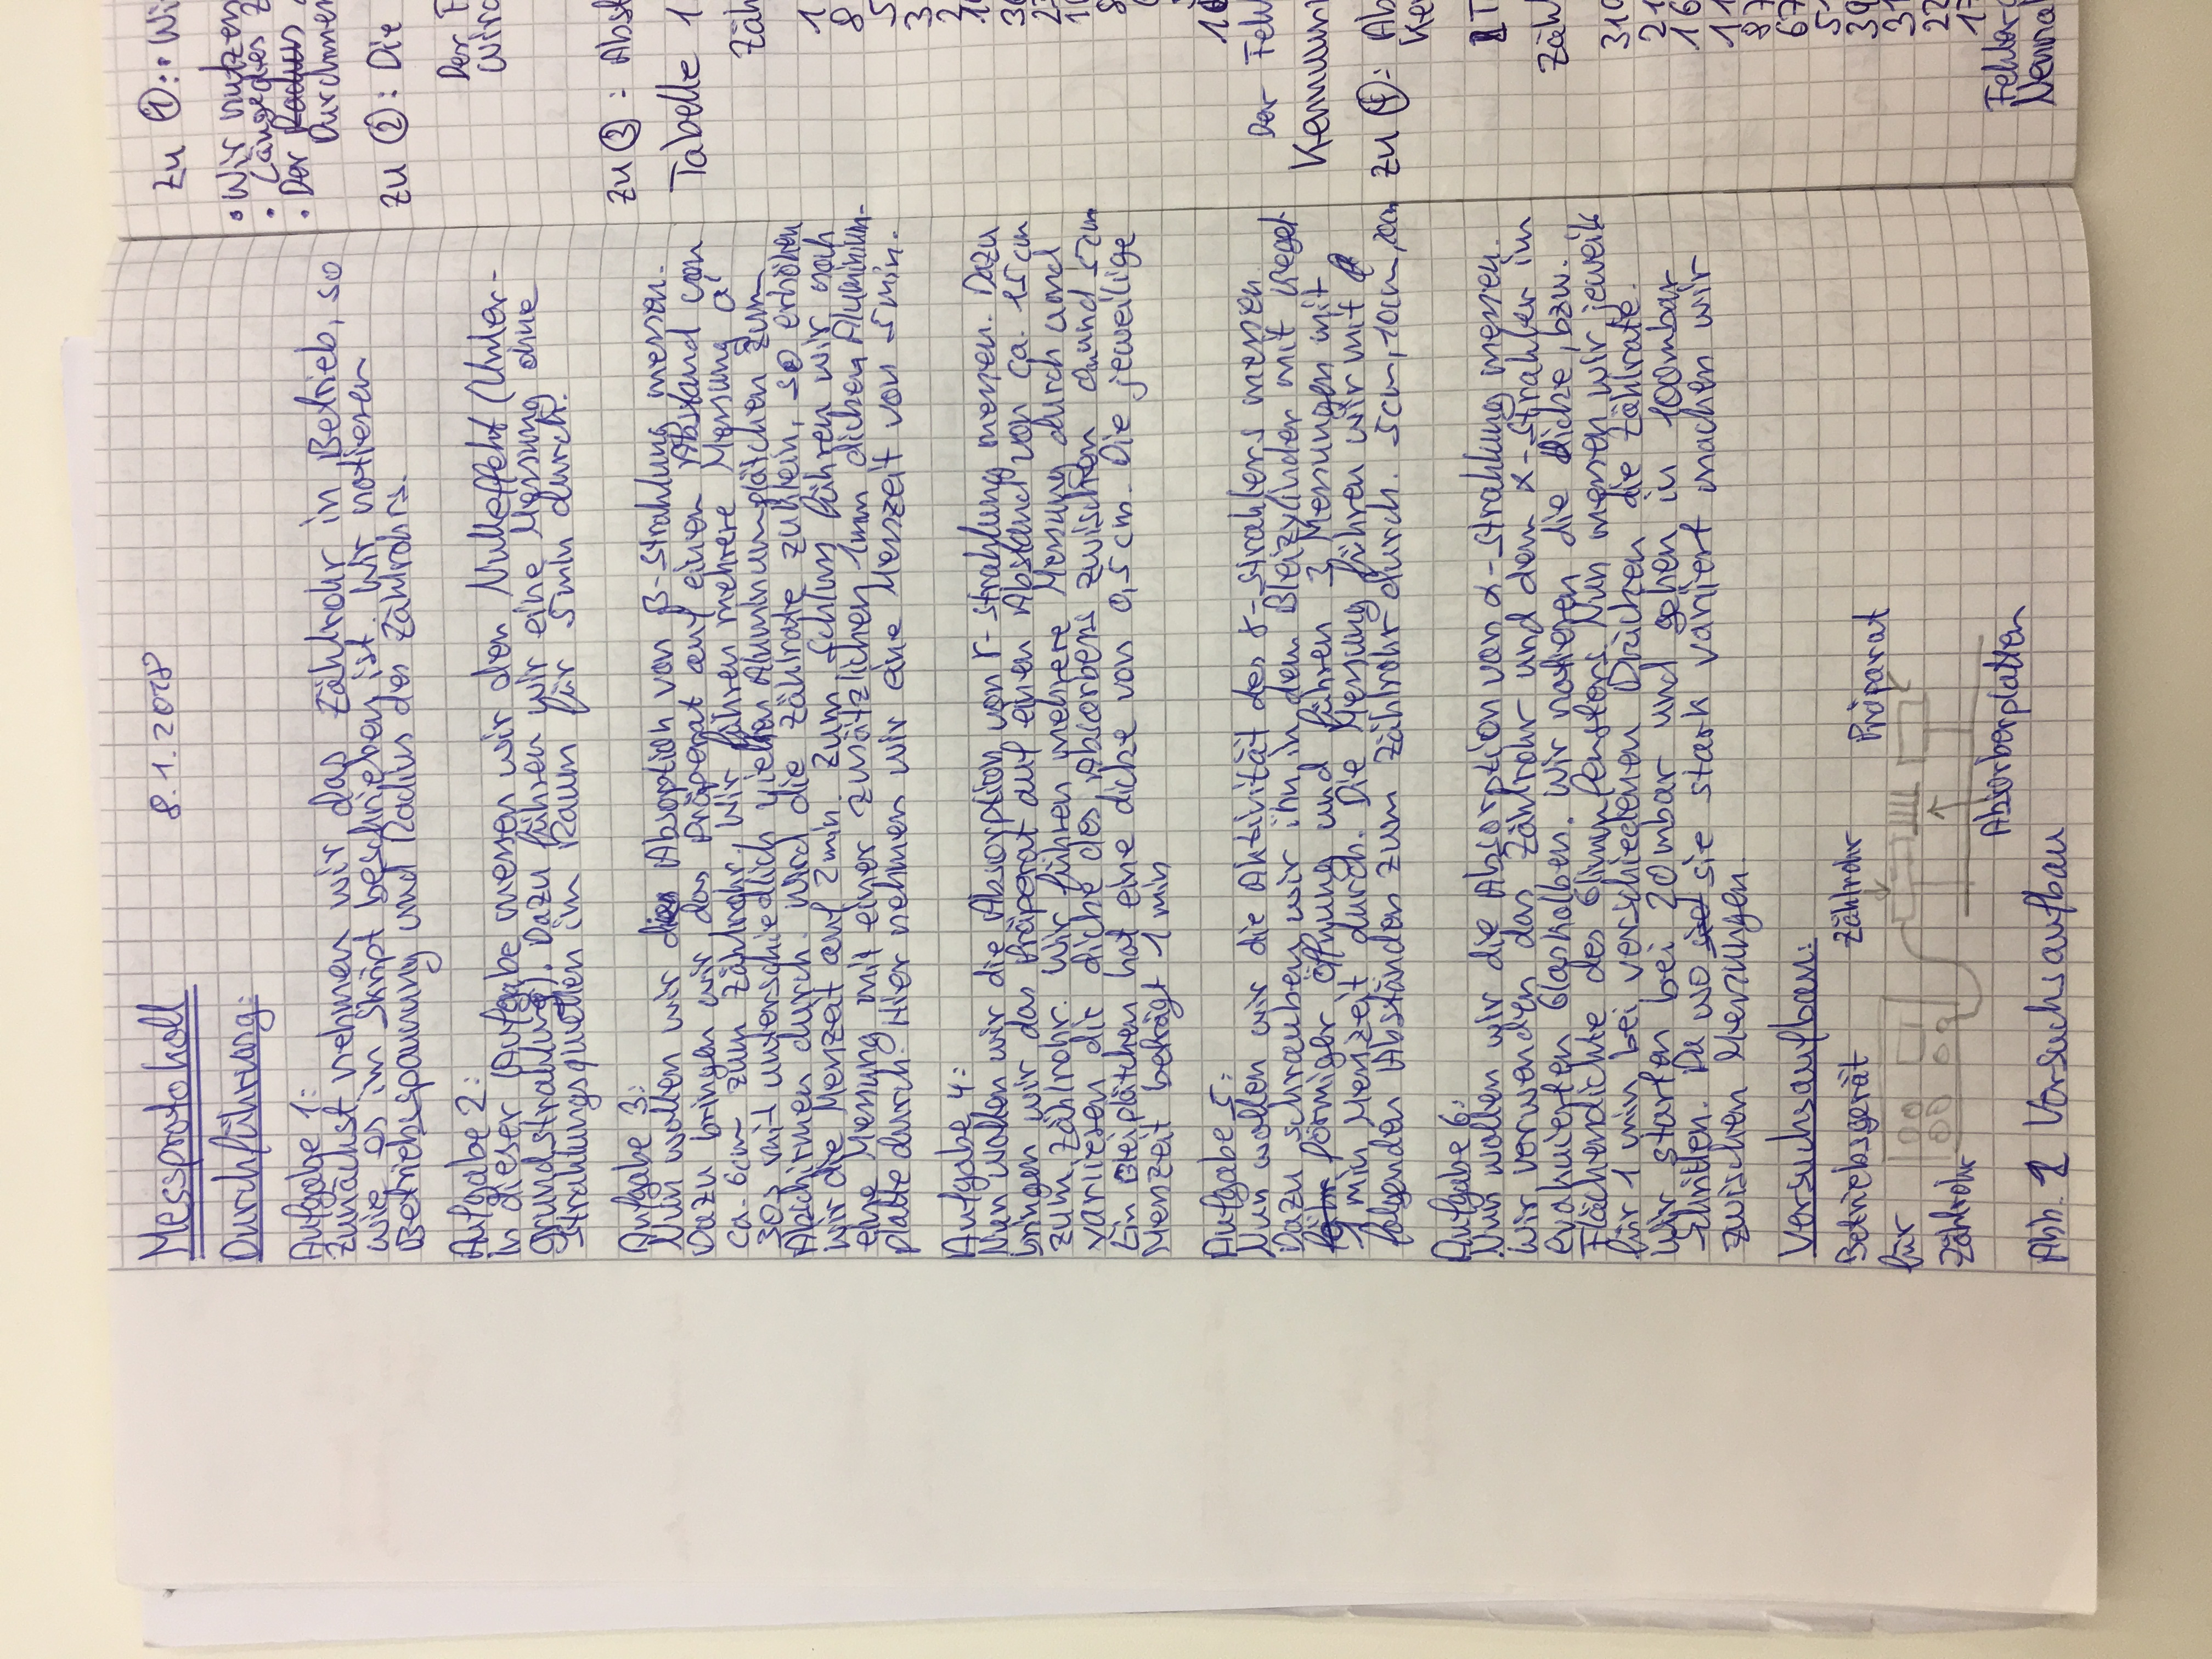 Messprotokoll 8.1.2018
Durchführung:
Aufgabe 1:
Zunächst nehmen wir das Zählrohr in Betrieb, so
wie es im Skript beschrieben ist. Wir notieren
Betriebsspannung und Radius des Zählrohrs.
Aufgabe 2:
In dieser Aufgabe messen wir den Nulleffekt (Unter-
grundstrahlung). Dazu führen wir eine Messung ohne
Strahlungsquellen im Raum für 5min durch.
Aufgabe 3:
Nun wollen wir die Absoption von β-Strahlung messen.
Dazu bringen wir das Präperat auf einen Abstand von
ca. 6cm zum Zählrohr. Wir führen mehrere Messung a'
30s mit unterschiedlich vielen Aluminumplätchen zum
Abschirmen durch. Wird die Zählrate zu klein, so erhöhen
wir die Messzeit auf 2min. Zum Schluss führen wir noch
eine Messung mit einer zusätzlichen 1mm dicken Aluminium-
platte durch. Hier nehmen wir eine Messzeit von 5min.
Aufgabe 4:
Nun wollen wir die Absorption von γ-Strahlung messen. Dazu
bringen wir das Präperat auf einen Abstand von ca. 15cm
zum Zählrohr. Wir führen mehrere Messung durch und
variieren die dicke des Absorbers zwischen 0 und 5cm
Ein Bleiplätchen hat eine dicke von 0,5cm. Die jeweilige
Messzeit beträgt 1min
Aufgabe 5:
Nun wollen wir die Aktivität des γ-Strahlers messen.
Dazu schrauben wir ihn in dem Bleizylinder mit kegel
förmiger Öffnung und führen 3 Messungen mit
1 min Messzeit durch. Die Messung führen wir mit
folgenden Abständen zum Zählrohr durch. 5cm, 10cm, 20cm
Aufgabe 6:
Nun wollen wir die Absorption von α-Strahlung messen.
Wir verwenden das Zählrohr und dem α-Strahler im
evakuierten Glaskolben. Wir notieren die dicke, bzw.
Flächendichte des Glimmfensters. Nun messen wir jeweils
für 1 min bei verschiedenen Drücken die Zählrate.
Wir starten bei 20mbar und gehen in 100mbar
Schritten. Da wo sie stark variiert machen wir
zwischen Messungen.
Versuchsaufbau:
Betriebsgerät Zählrohr Präparat
für
Zählrohr
Absorberplatten
Abb. 1 Versuchsaufbau
Zu ①: Wi
• Wir nutzen
• Länge des Z
• Der Radius
Durchmes
Zu ②: Die
Der F
wird
Zu ③: Abst
Tabelle 1
Zäh
1
8
5
3
2
Der Feh
Zu ④: Ab
Ke
Zähl
310
21
16
11
67
39
31
22
17
Fehler